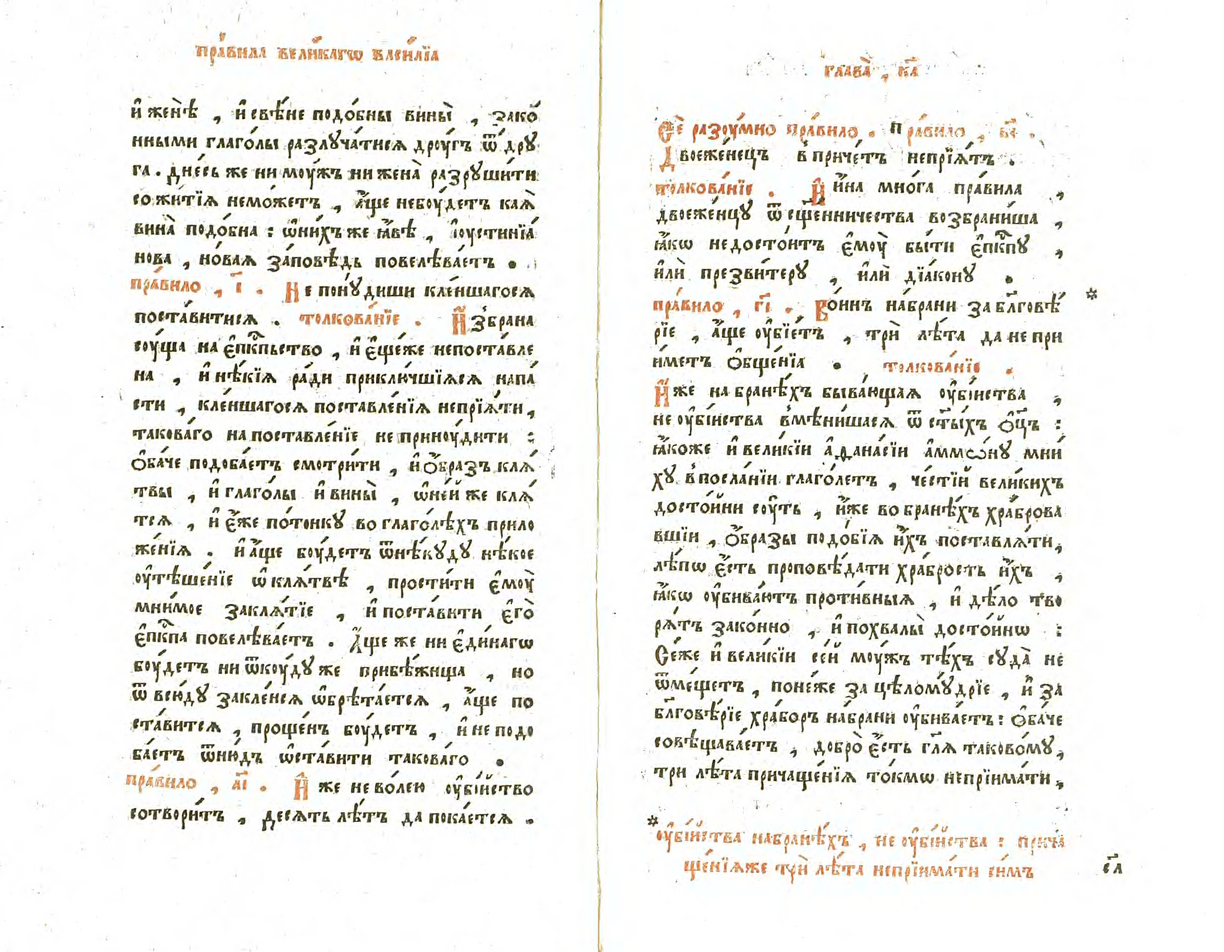 пра́вила вели́кагѡ васи́лїа
и҆ жен́ѣ , и҆ свѣ́не подо́бны вины̀ , зако́
нными глаго́лы разлꙋча́тисѧ дрꙋ́гъ ѿ дрꙋ́
га . дне́сь же ни мꙋ́жъ ни жена̀ разрꙋши́ти
сожи́тїѧ немо́жетъ , а҆́ще небꙋ́детъ ка́ѧ
вина̀ подо́бна : ѡ҆ ни́хъже ꙗ҆́вѣ , і҆ꙋстинїа́
нова , но́ваѧ за́повѣдь повелѣва́етъ .
пра́вило , і҃ . Не понꙋ́диши кле́ншагосѧ
поста́витисѧ . толкова́нїе . И҆збра́на
сꙋ́ща на є҆пкⷭ҇пьство , и҆ є҆ще́же непоста́вле
на , и҆ нѣ́кїѧ ра́ди приклю́чшїѧсѧ напа́
сти , кле́ншагосѧ поставле́нїѧ непрїѧ́ти ,
такова́го на поставле́нїе не принꙋ́дити :
ѻ҆ба́че подоба́етъ смотри́ти , и҆ ѻ҆́бразъ клѧ́
твы , и҆ глаго́лы и҆ вины̀ , ѡ҆ не́й же клѧ́
тсѧ , и҆ є҆́же по́тонкꙋ во глаго́лѣхъ прило
же́нїѧ . и҆ а҆́ще бꙋ́детъ ѿнѣ́кꙋдꙋ нѣ́кое
ᲂу҆тѣше́нїе ѡ҆ клѧ́твѣ , прости́ти є҆мꙋ̀
мни́мое заклѧ́тїе , и҆ поста́вити є҆го̀
є҆пкⷭ҇па повелѣва́етъ . А҆́ще же ни є҆ди́нагѡ
бꙋ́детъ ни ѿкꙋ́дꙋ же прибѣ́жища , но
ѿ всю́дꙋ закле́нсѧ ѡ҆брѣта́етсѧ , а҆́ще по
ста́витсѧ , проще́нъ бꙋ́детъ , и҆ не подо
ба́етъ ѿню́дъ ѡ҆ста́вити такова́го .
пра́вило , а҃і . И҆́же не во́лею ᲂу҆бі́йство
сотвори́тъ , де́сѧть лѣ́тъ да пока́етсѧ .
глава̀ , к҃а
Сѐ разꙋ́мно пра́вило . Пра́вило , в҃і .
Двоеже́нецъ в причетъ непрїѧ́тъ .
толкова́нїе . И҆ и҆́на мно́га пра́вила ,
двоеже́нцꙋ ѿ сщ҃е́нничества возбрани́ша ,
ꙗ҆́кѡ недосто́итъ є҆мꙋ̀ бы́ти є҆пкⷭ҇пꙋ ,
и҆лѝ презви́терꙋ , и҆лѝ дїа́конꙋ .
пра́вило , г҃і . Во́инъ на́брани за бл҃говѣ́
рїе , а҆́ще ᲂу҆бїе́тъ , трѝ лѣ́та да не прі
и́метъ ѻ҆бще́нїа . толкова́нїе .
И҆́же на бране́хъ быва́ющаѧ ᲂу҆бі́йства ,
не ᲂу҆бі́йства вмѣни́шасѧ ѿ ст҃ы́хъ ѻ҆ц҃ъ :
ꙗ҆́коже и҆ вели́кїи а҆ѳана́сїи а҆ммѡ́нꙋ мни́
хꙋ в посла́нїи глаго́летъ , че́стїй вели́кихъ
досто́йни сꙋ́ть , и҆́же во бране́хъ хра́брова
вшїи , ѻ҆́бразы подо́бїѧ и҆́хъ поставлѧ́ти ,
лѣ́пѡ є҆́сть проповѣ́дати хра́брость и҆́хъ ,
ꙗ҆́кѡ ᲂу҆бива́ютъ проти́вныѧ , и҆ дѣ́ло тво
рѧ́тъ зако́нно , и҆ похвалы̀ досто́йнѡ :
Се́же и҆ вели́кїи се́й мꙋ́жъ тѣ́хъ сꙋда̀ не
ѿме́щетъ , поне́же за цѣломꙋ́дрїе , и҆ за
бл҃говѣ́рїе хра́боръ на́брани ᲂу҆бива́етъ : ѻ҆ба́че
совѣщава́етъ , добро̀ є҆́сть гл҃ѧ таково́мꙋ ,
три лѣ́та причаще́нїѧ то́кмѡ непрїима́ти ,
* ᲂу҆бі́йства на бране́хъ , не ᲂу҆бі́йства : прича
ще́нїѧже трѝ лѣ́та непрїима́ти си́мъ
с҃л